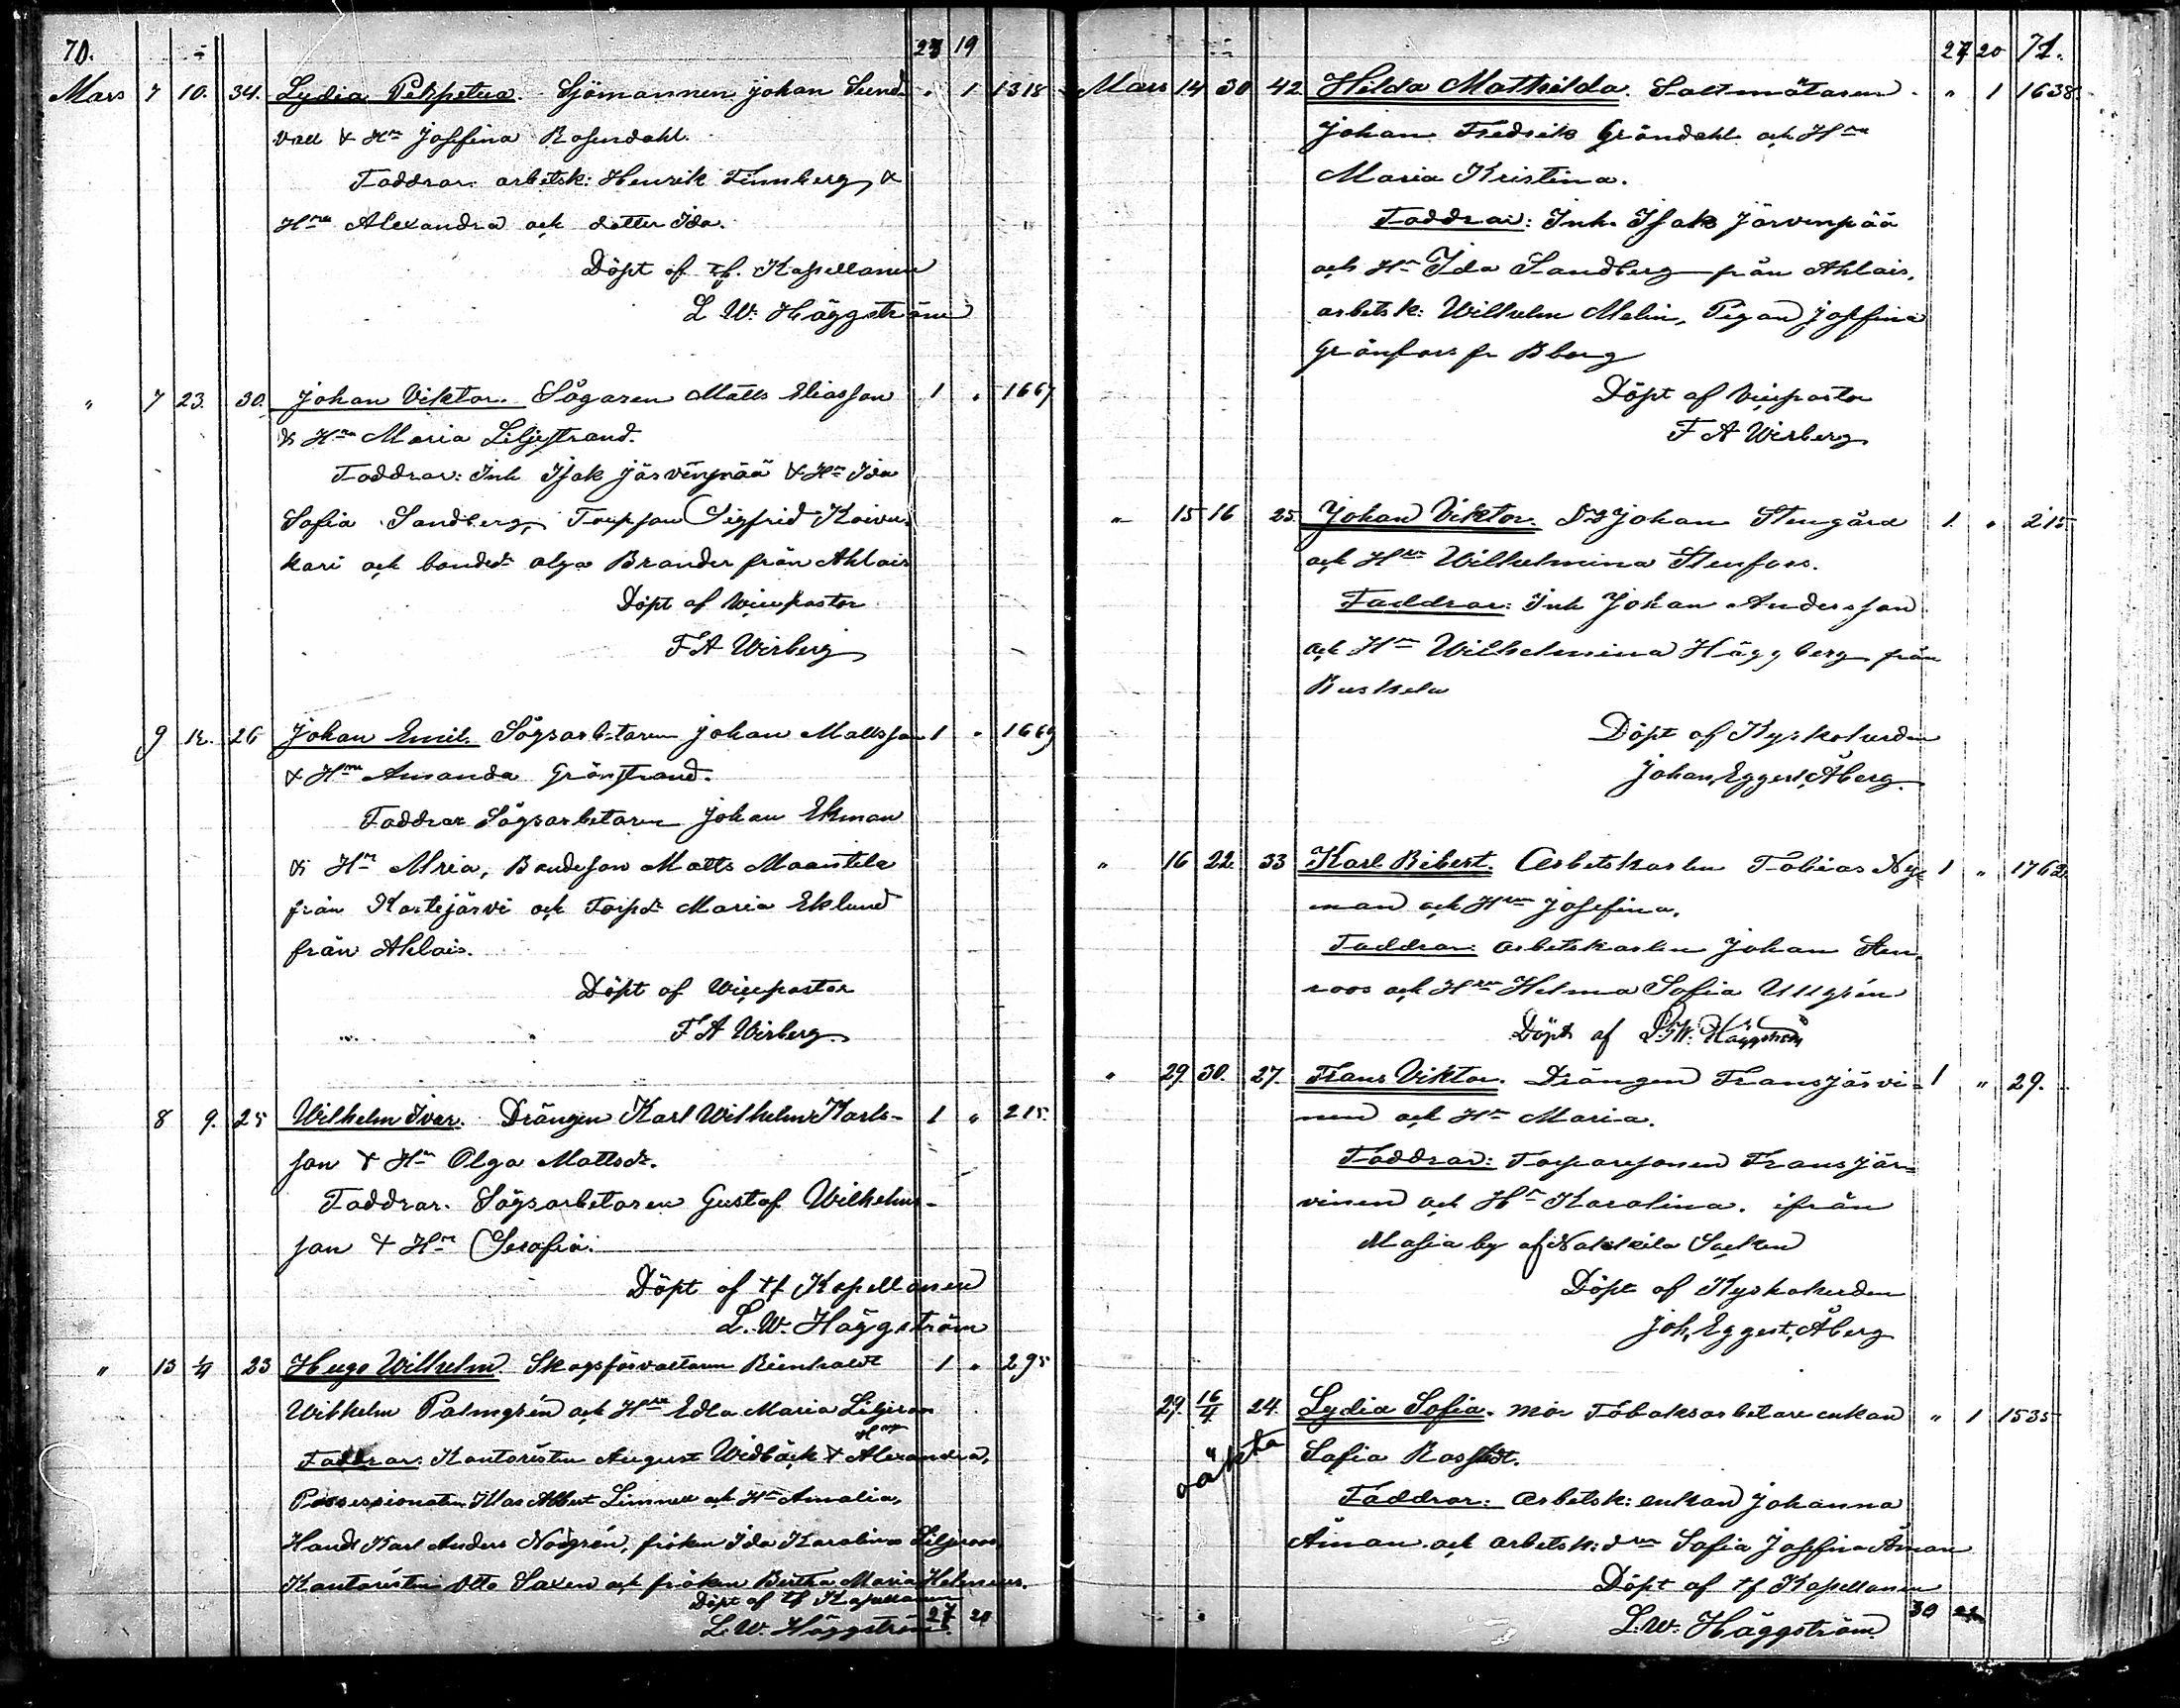 70. 27 19
Mars 7 10. 34. Lydia Perpetua. Sjömannen Johan Sund- " 1 1318
vall & Hu Josefina Rosendahl.
Faddrar: arbetsk: Henrik Finnberg, &
Hu Alexandra och dotter Ida.
Döpt af tf. Kapellanen
L. W. Häggström
" 7 23. 30. Johan Viktor. Sågaren Matts Eliasson 1 " 1667
& Hu Maria Liljestrand.
Faddrar: Inh Isak Järvinpää & Hu Ida
Sofia Sandberg, Torpson Sigfrid Koivu-
kari och bonded. Olga Brander från Ahlais
Döpt af Vicepastor
F A Wirberg
9 12. 26 Johan Emil. Sågsarbetaren Johan Mattsson 1 " 1669
& Hu Amanda Grönstrand.
Faddrar Sågsarbetaren Johan Ekman
& Hu Mria, Bondeson Matts Maantila
från Kortejärvi och Torpd. Maria Eklund
från Ahlais.
Döpt af Vicepastor
F A Wirberg
8 9. 25 Wilhelm Ivar. Drängen Karl Wilhelm Karls- 1 " 215.
son & Hu Olga Mattsdr.
Faddrar. Sågsarbetaren Gustaf Wilhelms-
son & Hu Serafia.
Döpt af tf Kapellanen
L. W. Häggström
" 13 1/4 23 Hugo Wilhelm. Skogsförvaltaren Reinholdt 1 " 295
Wilhelm Palmgrén och Hu Edla Maria Liljeroos
Faddrar: Kontoristen August Widbäck & Hu Alexandra,
Possessionaten Klas Albert Limnell och Hu Amalia,
Handl Karl Anders Nordgrén, fröken Ida Karolina Liljeroos,
Kontoristen Otto Saxen och fröken Bertha Maria Heleneus.
Döpt af tf Kapellanen
L. W. Häggström. 27 20
27 20 71.
Mars 14 30 42. Hilda Mathilda. Saltmätaren " 1 1638.
Johan Fredrik Gröndahl och Hu
Maria Kristina.
Faddrar: Inh. Isak Järvenpää
och Hu Ida Sandberg från Ahlais,
arbetsk: Wilhelm Melin, Pigan Josefina
Grönfors fr Bberg
Döpt af Vicepastor
F A Wirberg
" 15 16 25. Johan Viktor. Johan Stengård 1. " 215
och Hu Wilhelmina Stenfors.
Faddrar: Inh Johan Andersson
och Hu Wilhelmina Häggberg från
Ruskela
Döpt af Kyrkoherden
Johan Eggert Åberg.
" 16 22. 33 Karl Ribert. Arbetskarlen Tobias Ny- 1 " 1762.
man och Hu Josefina.
Faddrar: arbetskarlen Johan Sten-
roos och Hu Helma Sofia Ullgrén
Döpt af L. W. Häggström
" 29. 30. 27. Frans Viktor. Drängen Frans Järvi- 1 " 29.
nen och Hu Maria.
Faddrar: Torparesonen Frans Jär-
vinen och Hu Karolina. ifrån
Masia by af Nakkila Socken
Döpt af Kyrkoherden
Joh. Eggert, Åberg
29. 16/4 24. Lydia Sofia. Mor Tobaksarbetare enkan " 1 1535
oäkta Sofia Rosstedt.
Faddrar: Arbetsk: enkan Johanna
Åman och arbetsk: dr Sofia Josefina Åman
Döpt af tf Kapellanen
L. W. Häggström. 30